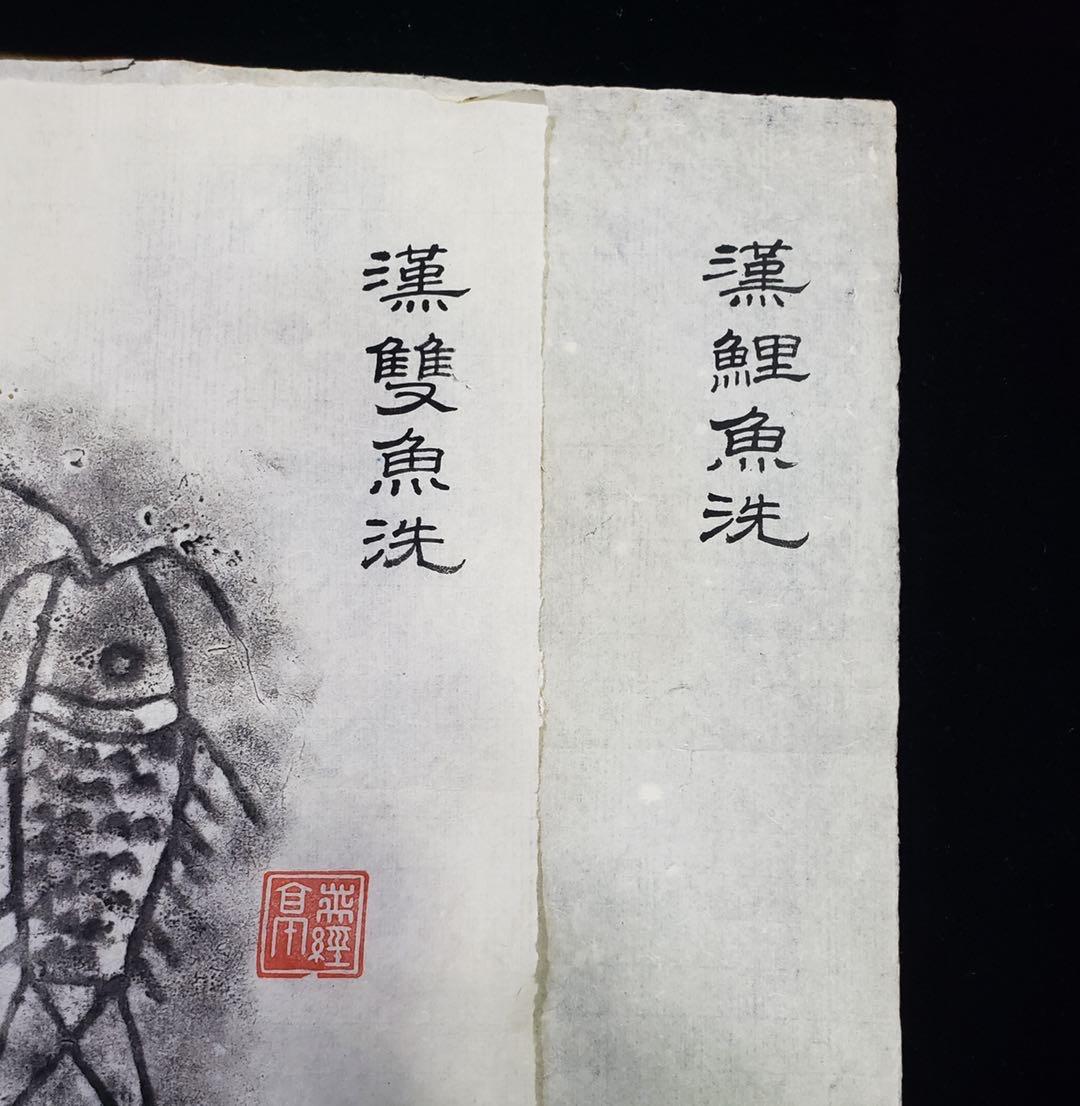 漢鯉魚洗
漢雙魚洗
經